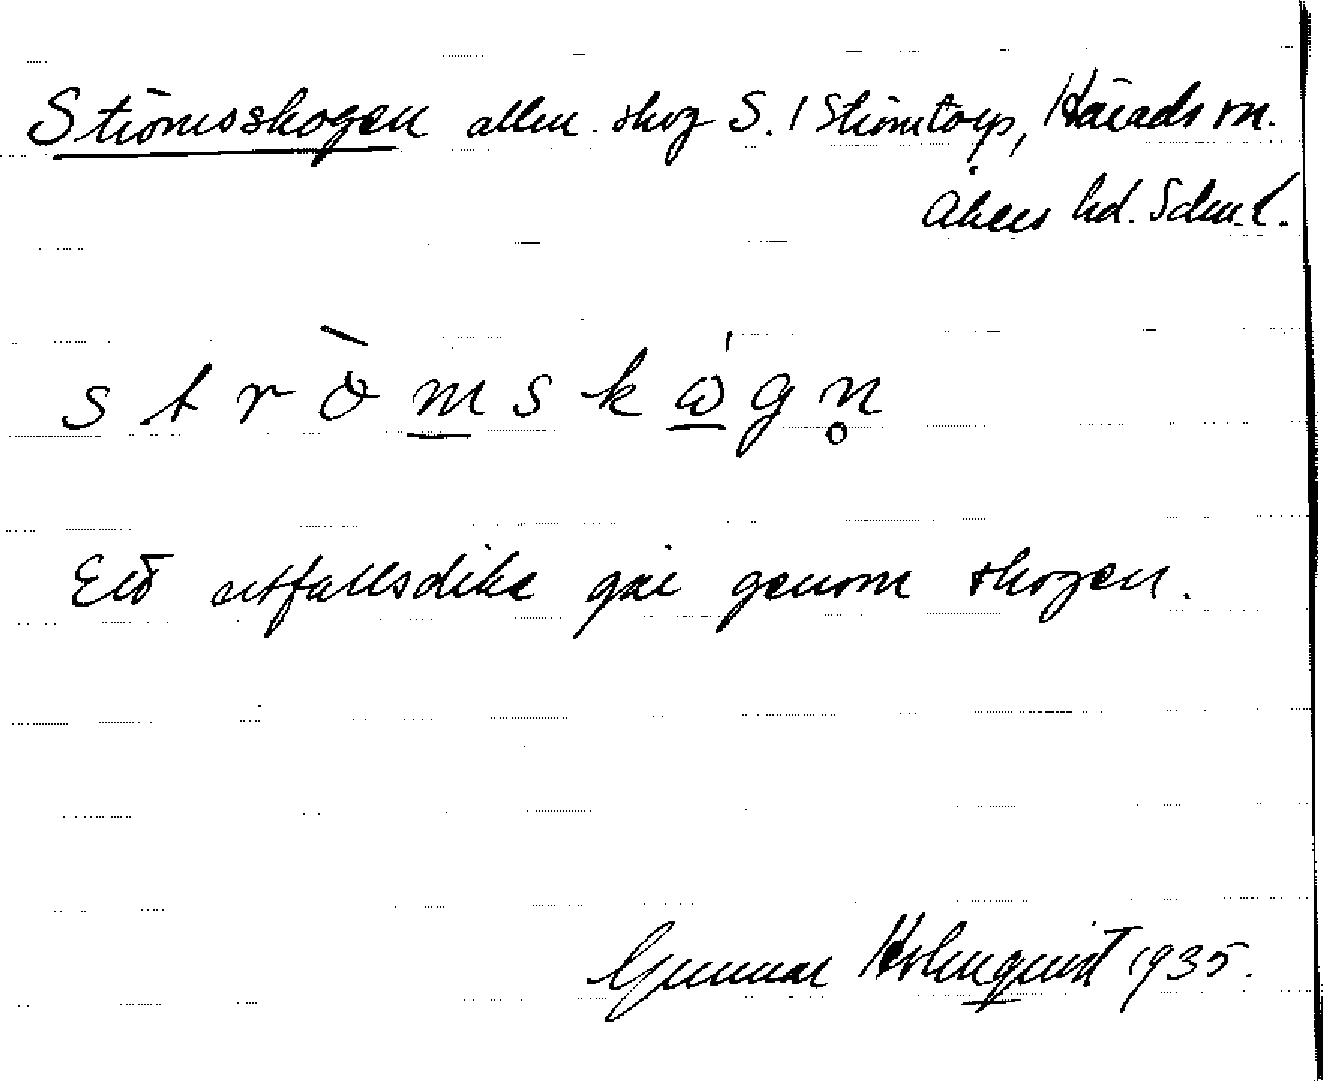 Strömsskogen allm. skog S. 1 Strömtorp, Härads sn.
Åkers hd. Södm. l.
s t r ò̀ m̲ s k ώ̲ g n̥
Ett utfallsdike går genom skogen.
Gunnar Holmquist 1935.